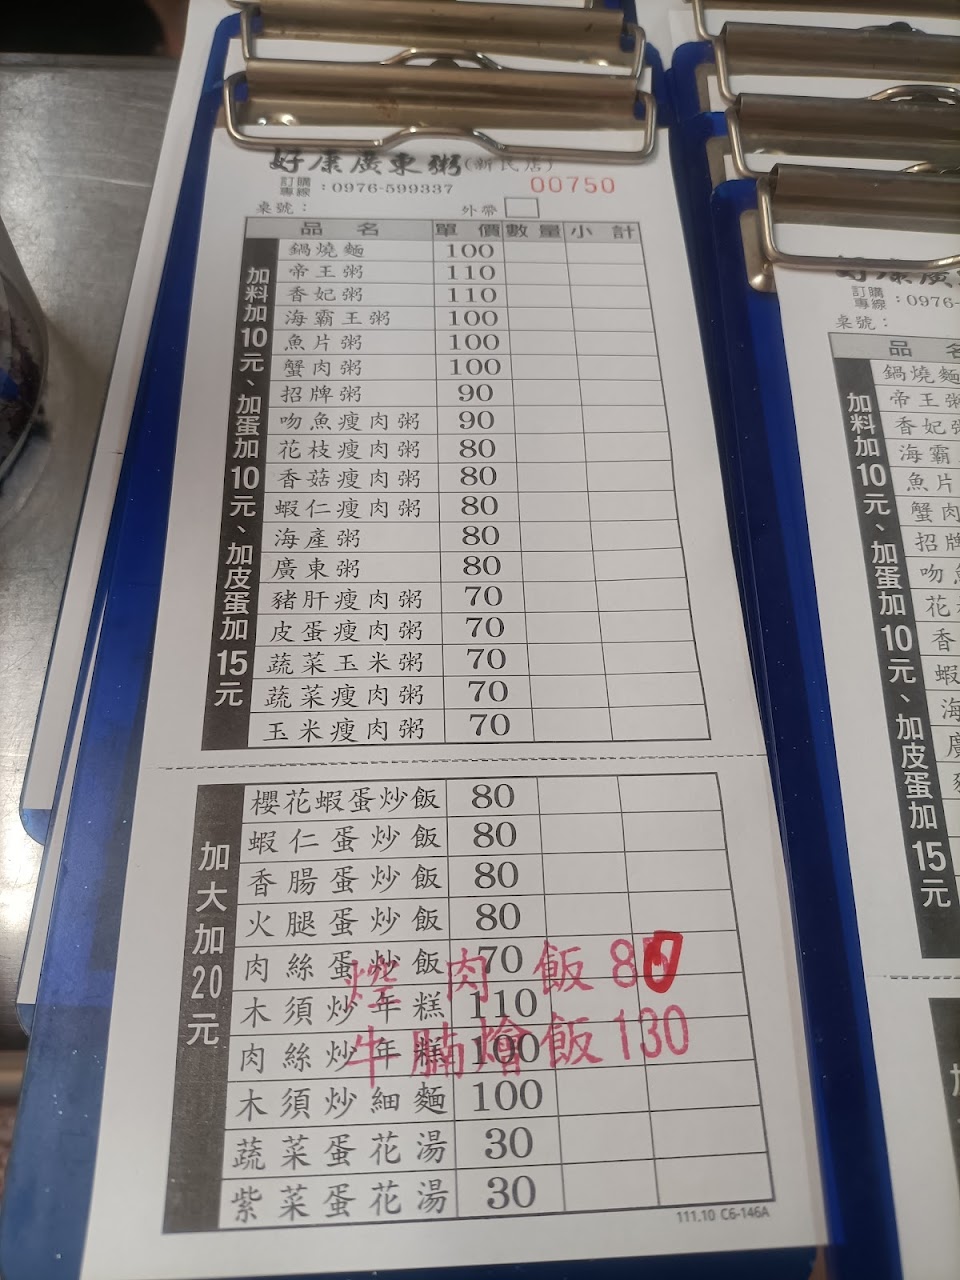 好康廣東粥(新民店)
訂購專線：0976-599337 00750
桌號： 外帶
品名 單價 數量 小計
加料加10元、加蛋加10元、加皮蛋加15元
鍋燒麵 100
帝王粥 110
香妃粥 110
海霸王粥 100
魚片粥 100
蟹肉粥 100
招牌粥 90
吻魚瘦肉粥 90
花枝瘦肉粥 80
香菇瘦肉粥 80
蝦仁瘦肉粥 80
海產粥 80
廣東粥 80
豬肝瘦肉粥 70
皮蛋瘦肉粥 70
蔬菜玉米粥 70
蔬菜瘦肉粥 70
玉米瘦肉粥 70
加大加20元
櫻花蝦蛋炒飯 80
蝦仁蛋炒飯 80
香腸蛋炒飯 80
火腿蛋炒飯 80
肉絲蛋炒飯 70
焢肉飯 80
木須炒年糕 110
牛腩燴飯 130
肉絲炒年糕 100
木須炒細麵 100
蔬菜蛋花湯 30
紫菜蛋花湯 30
111.10 C6-146A
訂購專線：0976-
桌號：
品
加料加10元、加蛋加10元、加皮蛋加15元
鍋燒麵
帝王粥
香妃粥
海霸
魚片
蟹肉
招牌
吻
花
香
蝦
海
廣